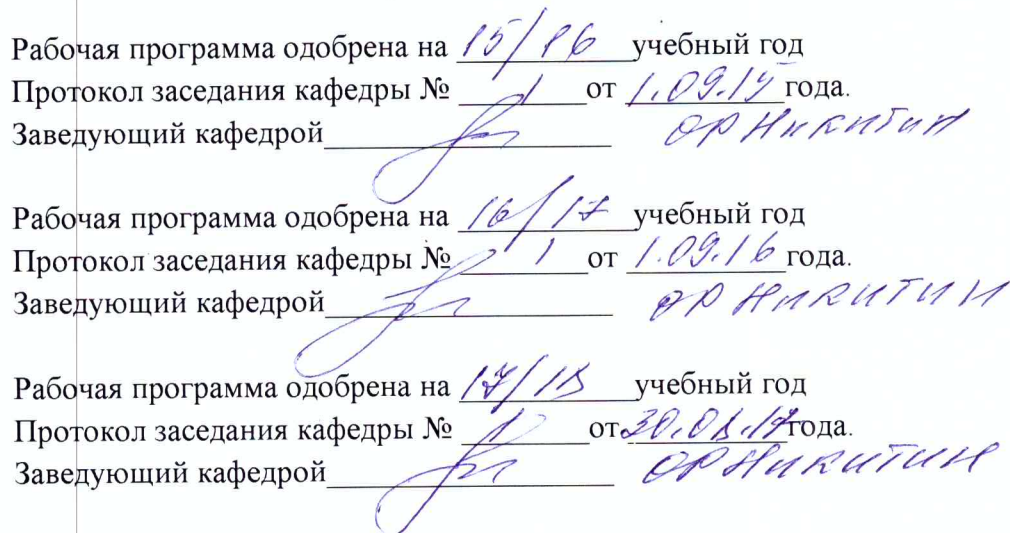 Рабочая программа одобрена на 15/16 учебный год
Протокол заседания кафедры № 1 от 1.09.1 года.
Заведующий кафедрой ОР Никитин
Рабочая программа одобрена на 16/17 учебный год
Протокол заседания кафедры № 1 от 1.09.16 года.
Заведующий кафедрой ОР Никитин
Рабочая программа одобрена на 17/18 учебный год
Протокол заседания кафедры № 1 от 30.08.17 года.
Заведующий кафедрой ОР Никитин